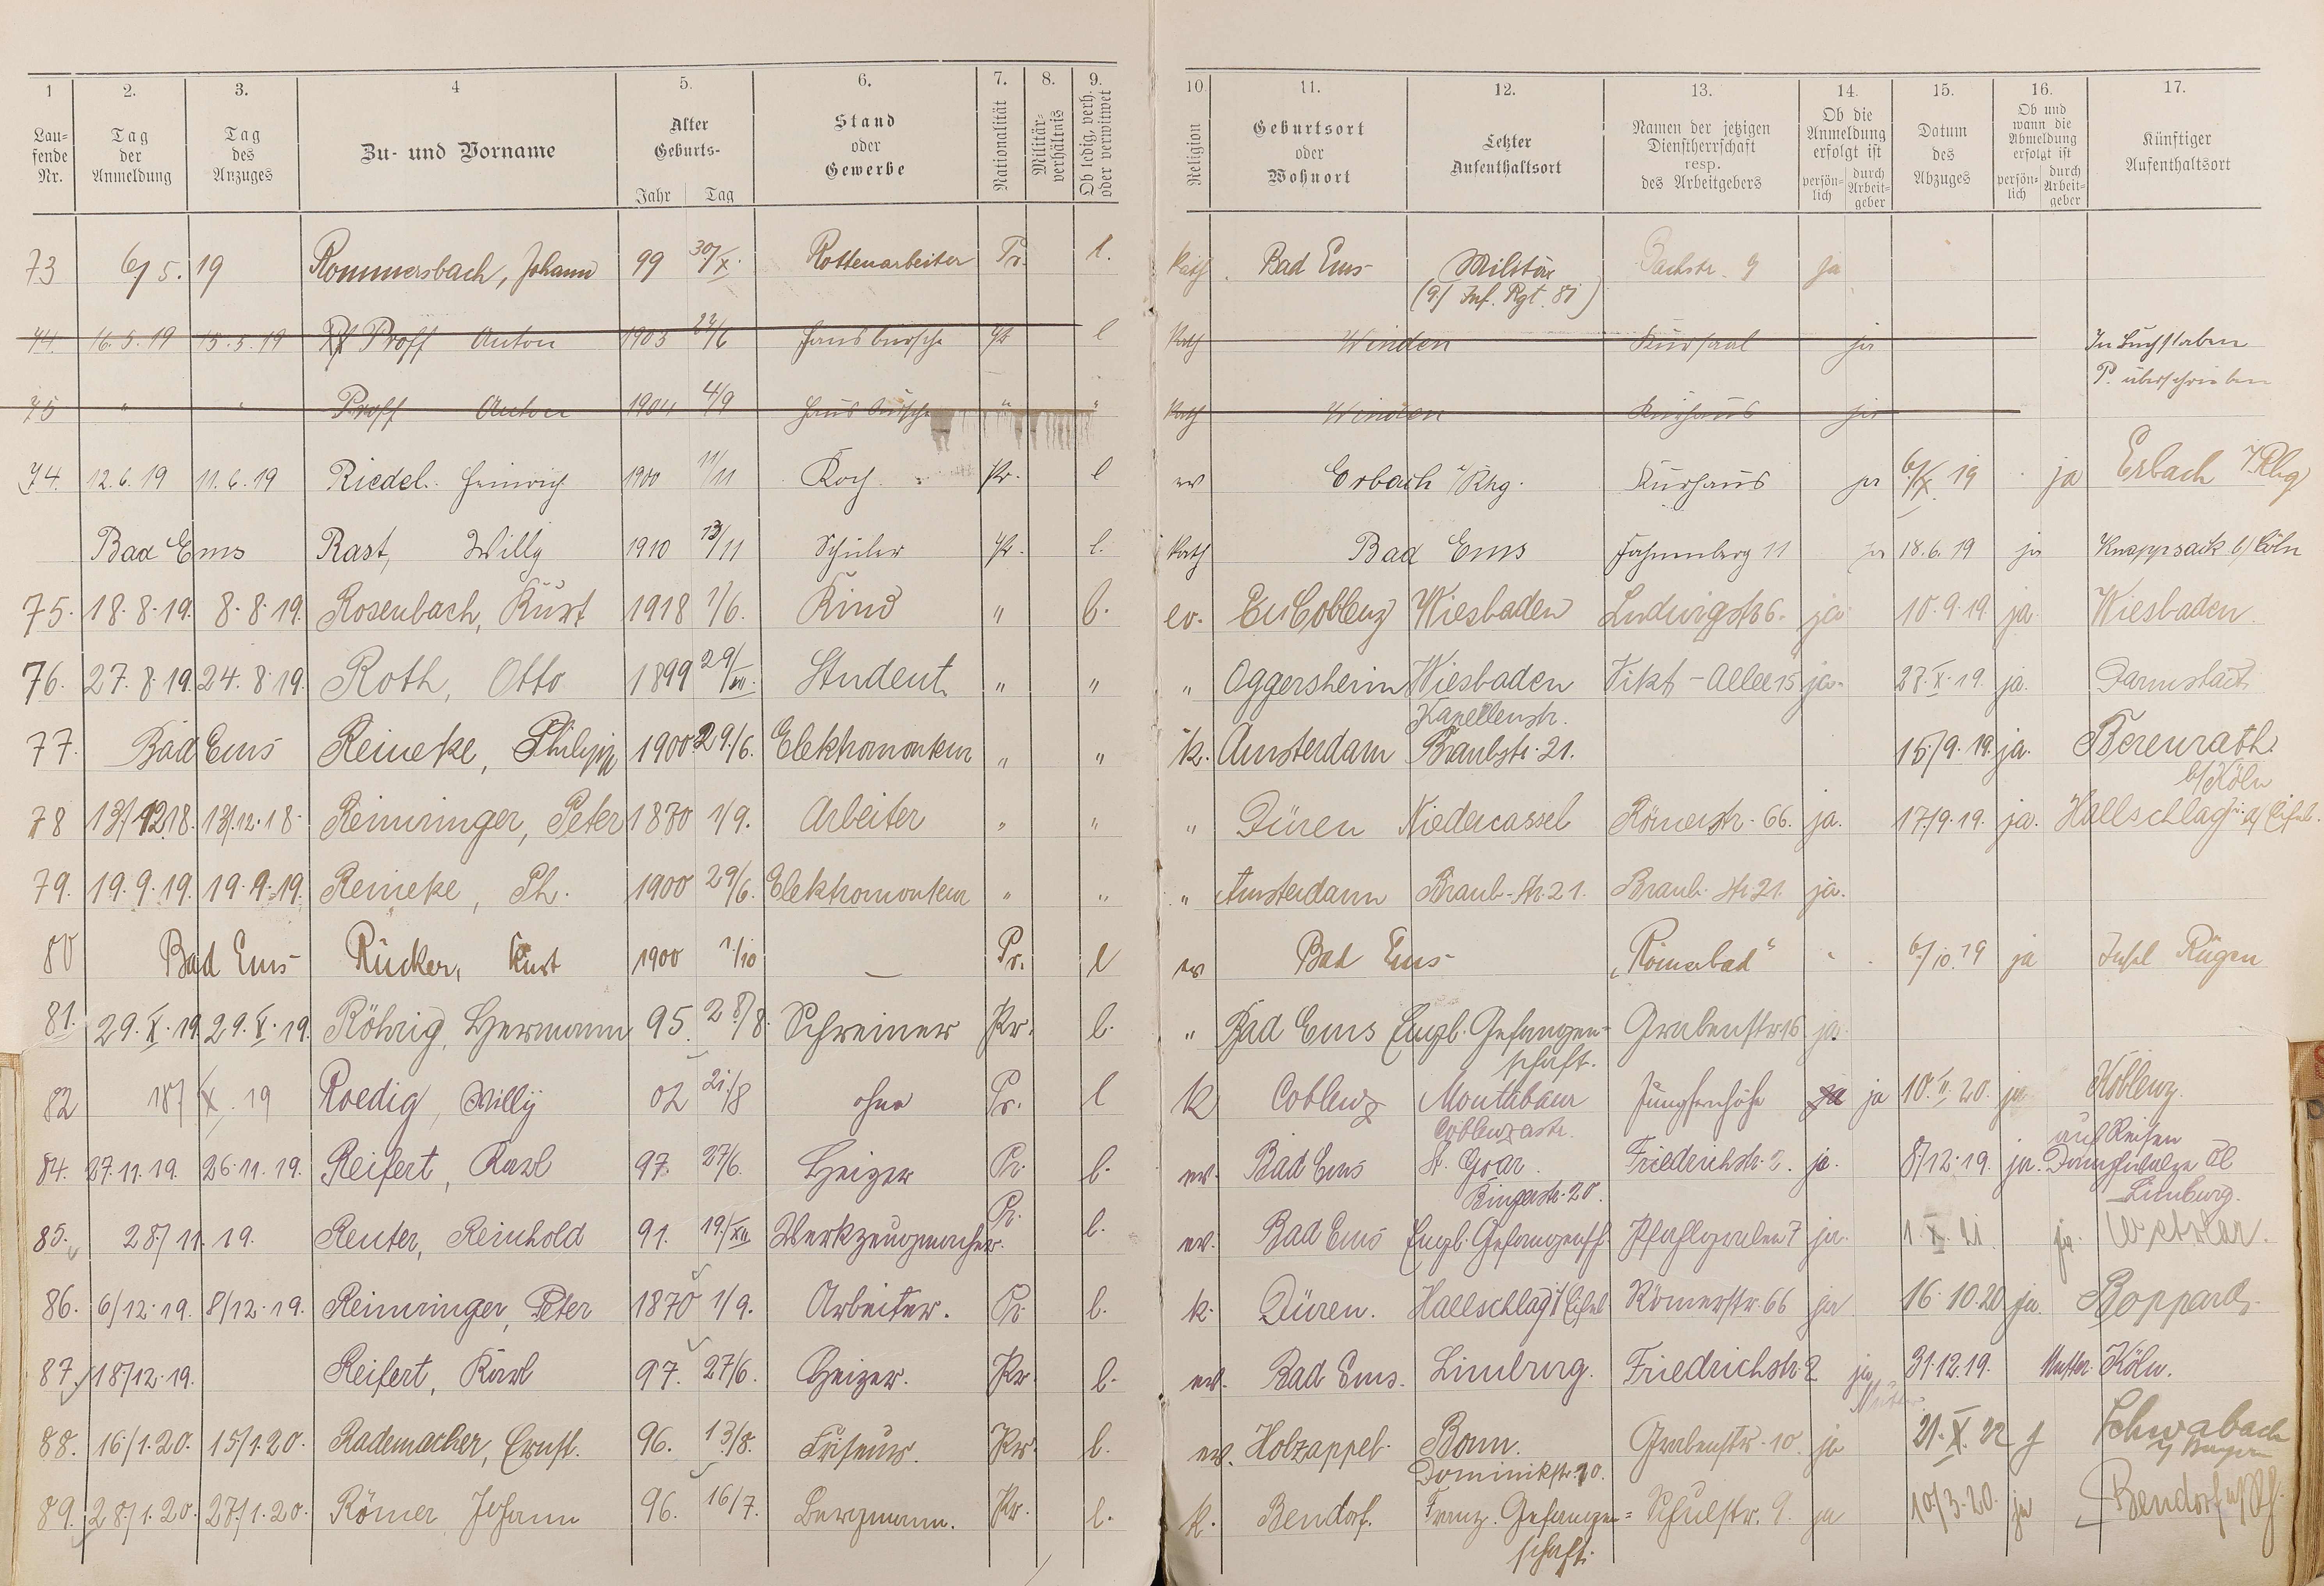 1 2. 3. 4 5. 6. 7. 8. 9. 10. 11. 12. 13. 14. 15. 16. 17.
Lau-
fende
Nr.
Tag
der
Anmeldung
Tag
des
Anzuges
Zu- und Vorname
Alter
Geburts-
Jahr Tag
Stand
oder
Gewerbe
Nationalität
Militär-
verhältnis
Ob ledig, verh.
oder verwitwet
Religion
Geburtsort
oder
Wohnort
Letzter
Aufenthaltsort
Namen der jetzigen
Dienstherrschaft
resp.
des Arbeitgebers
Ob die
Anmeldung
erfolgt ist
persön-
lich
durch
Arbeit-
geber
Datum
des
Abzuges
Ob und
wann die
Abmeldung
erfolgt ist
persön-
lich
durch
Arbeit-
geber
Künftiger
Aufenthaltsort
73 6/5. 19 Rommersbach, Johann 99 30/X. Rottenarbeiter Pr. l. Kath. Bad Ems Militär ja
(9/ Inf. Rgt. 81)
74. 16.5.19 15.5.19 Proff Anton 1903 Hausbursche Pr l Kath Winden Kursaal ja In Buchstaben
P. überschrieben
75 " " Proff Anton 1904 4/9 Hausbursche " " Kath Winden Kurhaus ja
74. 12.6.19 11.6.19 Riedel. Heinrich 1900 11/11 Koch Pr. l ev Erbach i/Rhg. Kurhaus ja 6/X. 19 ja Erbach i/Rhg
Bad Ems Rast, Willy 1910 13/11 Schüler Pr. l. Kath Bad Ems Fahnenberg 11 ja 18.6.19 ja Knappsack b/Cöln
75. 18.8.19. 8.8.19. Rosenbach, Kurt 1918 1/6. Kind " l. ev. Coblenz Wiesbaden Ludwigstr 6. ja 10.9.19. ja. Wiesbaden.
76. 27.8.19. 24.8.19. Roth, Otto 1899 29/ Student " " " Oggersheim Wiesbaden Vikt-Allee 15 ja. 23.X.19. ja. Darmstadt.
Kapellenstr.
77. Bad Ems Reineke, Philipp 1900. 29./6. Elektromonteur " " k. Amsterdam Braubstr. 21. 15./9.19. ja. Berenrath
b/Köln
78 13/12.18. 13/.12.18. Reinringer, Peter 1870 1/9. Arbeiter " " " Düren Niedercassel Römerstr. 66. ja. 17./9.19. ja. Hallschlag Eifel.
79. 19.9.19. 19.9.19. Reineke, Ph. 1900 29/6. Elektromonteur " " " Amsterdam Braub-Str. 21. Braub. Str. 21. ja.
80 Bad Ems Rücker, Kurt 1900 1/10 — Pr. l ev Bad Ems „Römerbad" 6/10.19 ja Insel Rügen
81. 29.X.19. 29.X.19. Röhrig, Hermann 95. 28/8. Schreiner Pr. l. " Bad Ems Engl. Gefangen- Grabenstr 16 ja.
schaft.
82 18/X.19 Roedig, Willy 02 21./8 ohne Pr. l k Coblenz Montabaur Jungfernhöhe ja ja 10.II.20. ja Koblenz.
Coblenzastr.
84. 27.11.19. 26.11.19. Reifert, Karl 97. 27/6. Heizer Pr. l. ev. Bad Ems St. Goar. Friedrichstr. 2. ja. 8/12.19. ja. auf Reisen
Bingerstr. 20. Dampfwalze
Limburg.
85. 28./11.19. Reuter, Reinhold 91. 19./XII Werkzeugmacher. Pr. l. ev. Bad Ems Engl. Gefangensch. Pfahlgraben 7 ja. 1.X.21 ja. Wetzlar.
86. 6/12.19. 8/12.19. Reinringer, Peter 1870 1/9. Arbeiter. Pr. l. k. Düren. Hallschlag i/Eifel Römerstr. 66 ja 16.10.20 ja. Boppard.
87. 18./12.19. Reifert, Karl 97. 27/6. Heizer. Pr. l. ev. Bad Ems. Limburg. Friedrichstr. 2 ja 31.12.19. Mutter. Köln.
Mutter
88. 16/1.20. 15/1.20. Rademacher, Ernst. 96. 13/8. Friseur. Pr. l. ev. Holzappel. Bonn. Grabenstr. 10. ja 21.X.22 j Schwabach
Dominikstr. 10. i/Bayern
89. 28/1.20. 27./1.20. Römer Johann 96. 16/7. Bergmann. Pr. l. k. Bendorf. Franz. Gefangen= Schulstr. 9. ja 10/3.20. ja Bendorf a/Rh.
schaft.